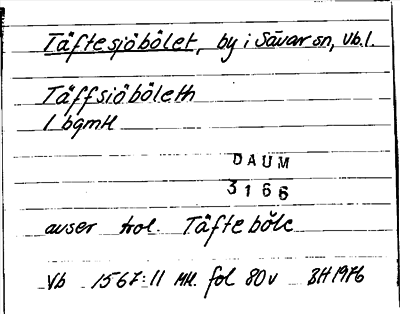 Täftesjöbölet, by i Sävar sn, Vb.l.
Täffsiöböleth
1 bgmtl
DAUM
3166
avser trol. Täfteböle
Vb 1567:11 MH. fol 80v BH 1976